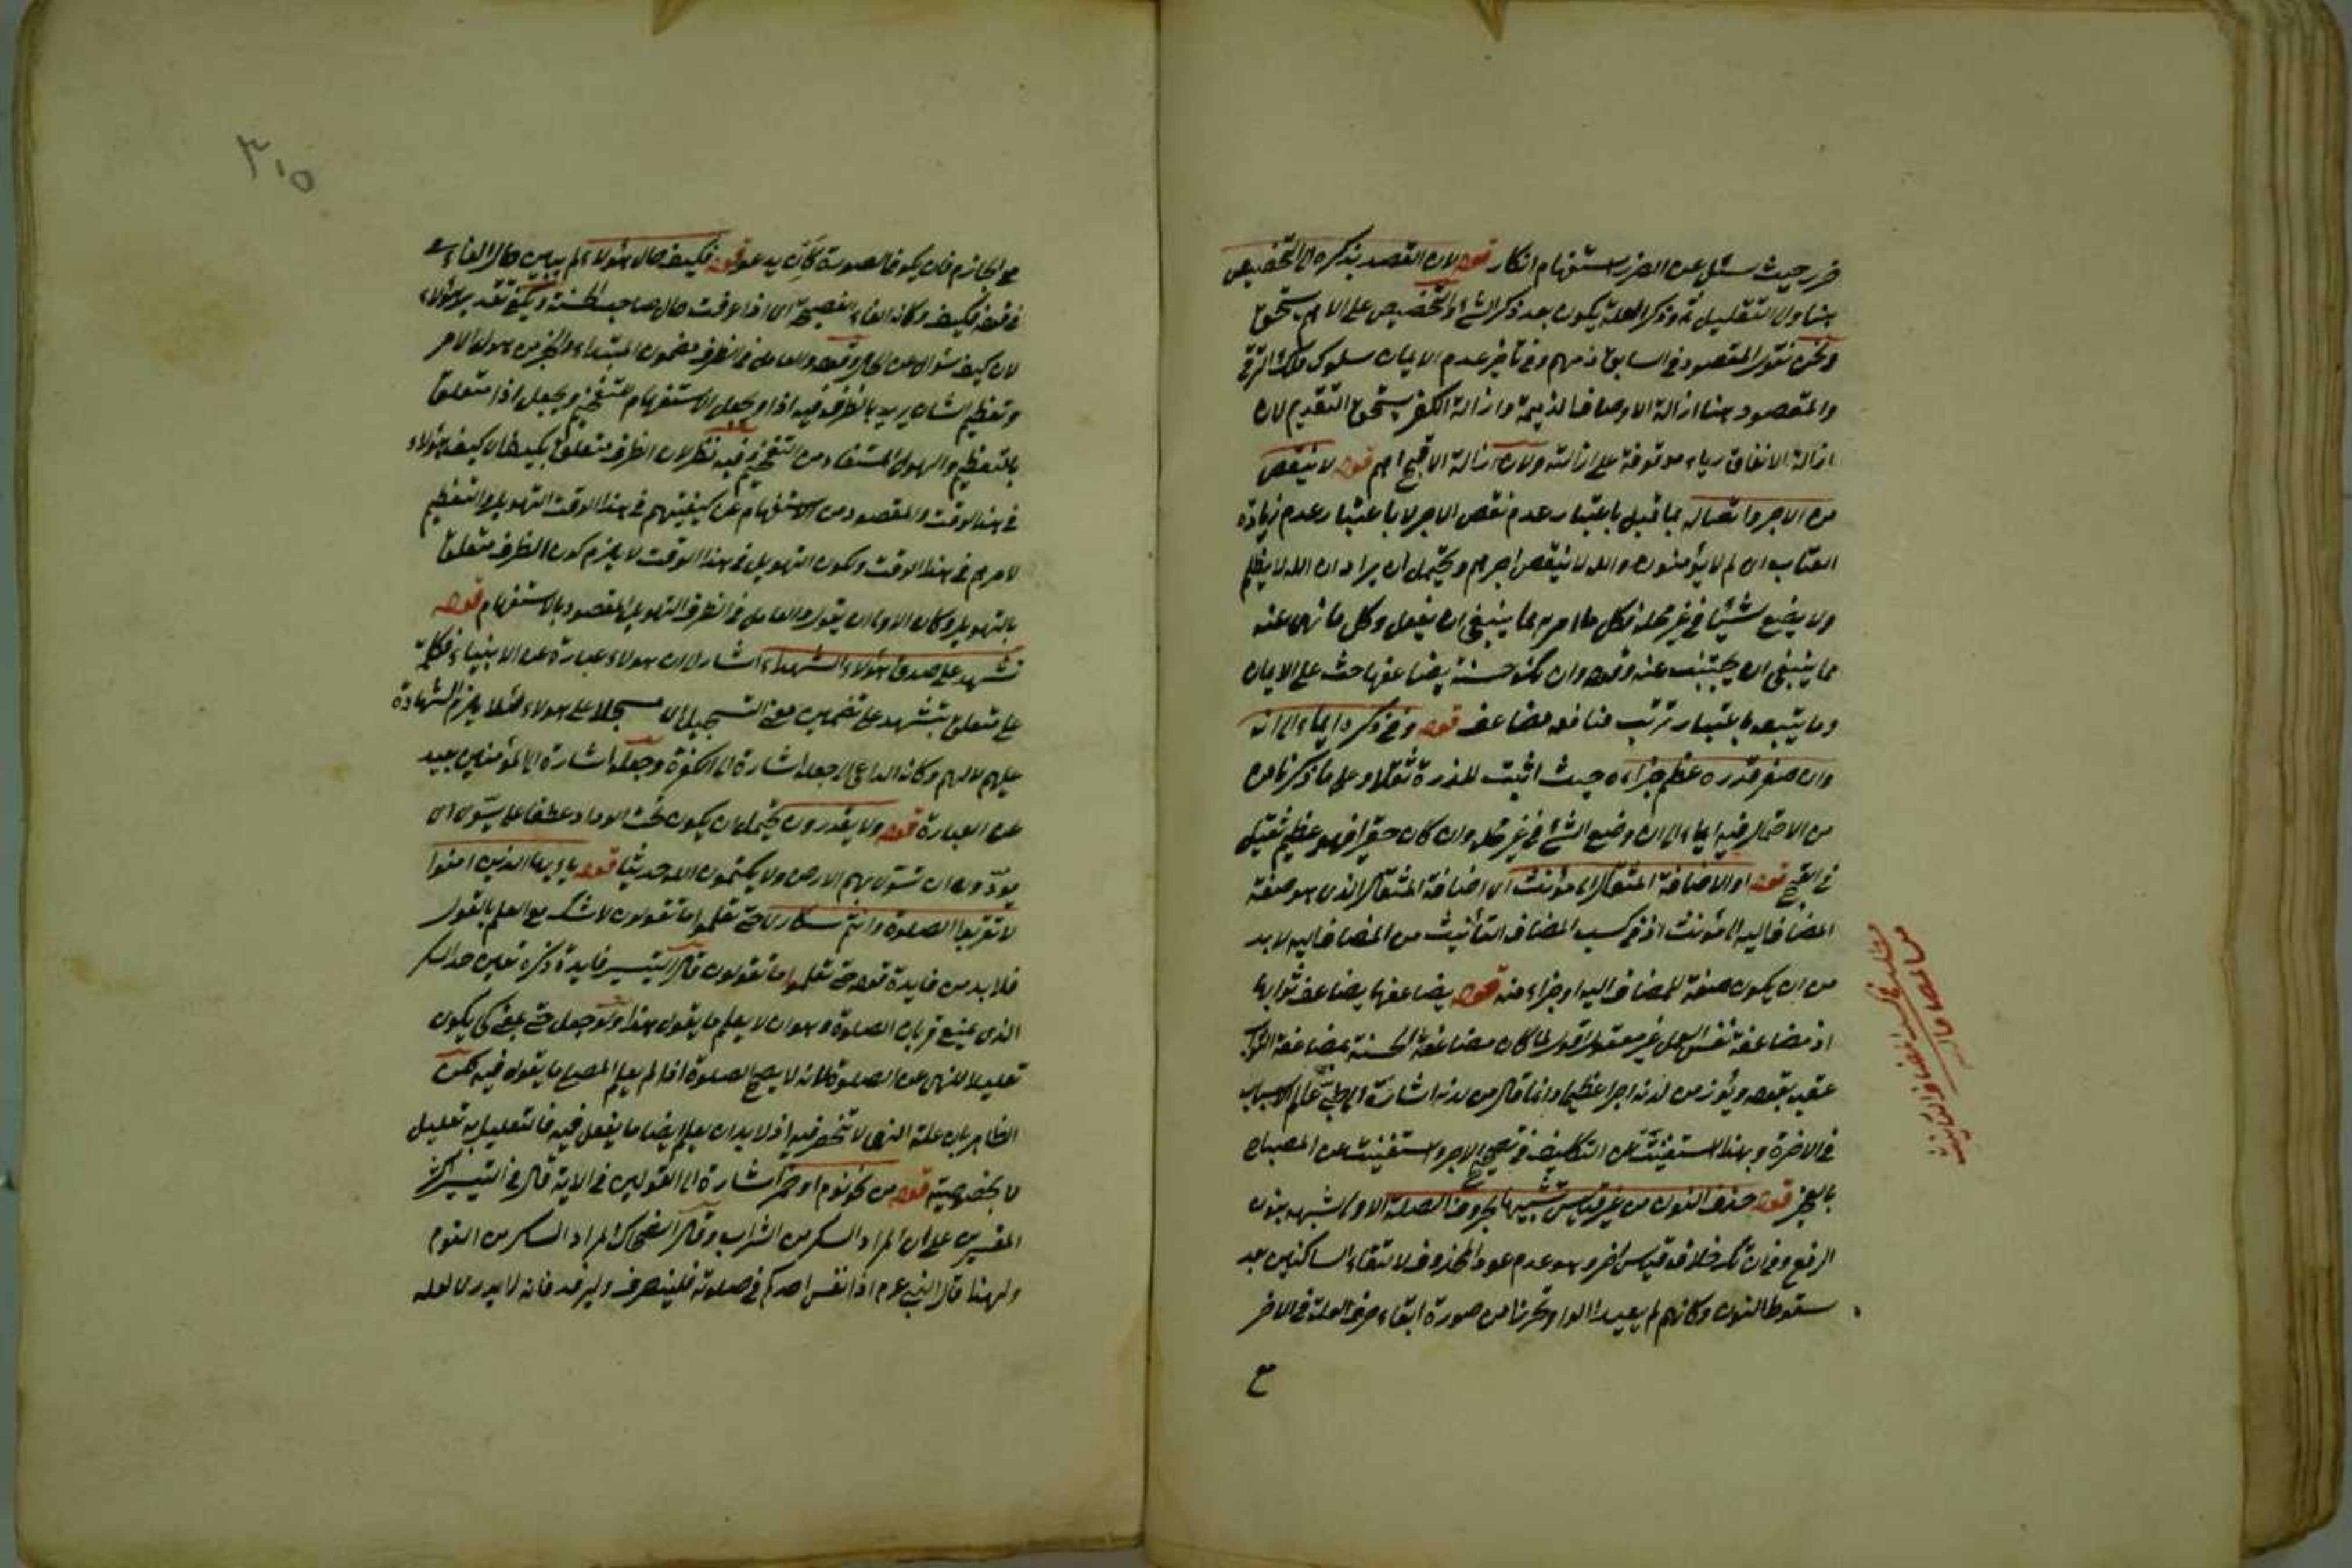 ضرر حيث سئل عن الضرر استفهام انكار قوله لان القصد بذكره الى التخصيص
هنا والى التعليل ثمة وذكر العلة يكون بعد ذكر الشئ والتخصيص على الاهم يستحق
ونحن نقول المقصود في السابق ذمهم وفي تأخير عدم الايمان سلوك الترقي
والمقصود هنا ازالة الاوصاف الذميمة وازالة الكفر يستحق التقديم لان
ازالة الانفاق رياء موقوفة على ازالته ولان ازالة الاقبح اهم قوله لا ينقص
من الاجر واتصاله بما قبل باعتبار عدم نقص الاجر لا باعتبار عدم زيادة
العقاب اى لم لا يؤمنون والله لا ينقص اجرهم ويحتمل ان يراد ان الله لا يظلم
ولا يضع شيئا في غير محله فكل ما امر به مما ينبغى ان يفعل وكل ما نهى عنه
مما ينبغى ان يجتنب عنه وقوله وان تك حسنة يضاعفها حث على الايمان
وما يتبعه باعتبار ترتب منافعه مضاعف قوله وفي ذكره ايماء الى انه
وان صغر قدره عظم جزاءه حيث اثبت للذرة ثقلا وعلى ما ذكرنا من
من الاحتمال فيه ايماء الى ان وضع الشئ في غير محله وان كان حقيرا فهو عظيم ثقيل
في القبح قوله او لاضافة المثقال الى مؤنث اى اضافة المثقال الذى هو صفة
المضاف اليه الى مؤنث اذ في كسب المضاف التأنيث من المضاف اليه لا بد
من ان يكون صفة للمضاف اليه او جزاء منه قوله يضاعفها يضاعف ثوابها
اذ مضاعفة نفس العمل غير معقول اقول لما كان مضاعفة الحسنة بمضاعفة الثواب
عقبه بقوله ويؤت من لدنه اجرا عظيما وانما قال من لدنه اشارة الى طى عالم الاسباب
في الاخرة وبهذا استغنيت عن التكليف في تصحيح الاجر واستغنيت عن المصباح
بالفجر قوله حذف النون من غير قياس تشبيها بحروف العلة الاولى شبهه بنون
الرفع وفي ان تك خلاف قياس اخر وهو عدم عود المحذوف لالتقاء الساكنين بعد
سقوط النون وكانهم لم يعيدا الواو تحرزا من صورة ابقاء حرف العلة في الاخر
مطلب في كسب المضاف التأنيث
من المضاف اليه
٣١٥
مع الجازم فان يكو في الصورة كأن يدعو قوله فكيف حال هؤلاء لم يبين حال الفاء
في قوله فكيف وكانه الفاء الفصيحة اى اذا عرفت حال صاحب الحسنة ويكفى تقدير هؤلاء
لان كيف سؤال عن الحال وقوله والعامل في الظرف مضمون المبتداء والخبر من هول الامر
وتعظيم الشان يريد بالظرف فيه اذا وبجعل الاستفهام للتفخيم ويجعل اذا متعلقا
بالتعظيم والهول المستفاد من التفخيم فيه نظر لان الظرف متعلق بكيف اى كيف هؤلاء
في هذا الوقت والمقصود من الاستفهام عن كيفيتهم في هذا الوقت التهويل والتعظيم
لامرهم في هذا الوقت وكون التهويل في هذا الوقت لا يلزم كون الظرف متعلقا
بالتهويل وكان الاولى ان يقول والعامل في الظرف التهويل المقصود بالاستفهام قوله
تشهد على صدق هؤلاء الشهداء اشار الى ان هولاء عبارة عن الانبياء فكلمة
على متعلق بتشهد على تضمين معنى التسجيل اى مسجلا على هولاء فلا يلزم الشهادة
عليهم لا لهم وكانه الداعى لجعله اشارة الى الكفرة وجعله اشارة الى المؤمنين بعيد
عن العبارة قوله ولا يقدرون يحتمل ان يكون تحت الوداد عطفا على تسوى اى
يودون ان تسوى بهم الارض ولا يكتمون الله حديثا قوله يا ايها الذين امنوا
لا تقربوا الصلوة وانتم سكارى حتى تعلموا ما تقولون لا شك مع العلم بالقول
فلا بد من فايدة قوله حتى تعلموا ما تقولون قال في التيسير فايدة ذكره تعيين حد السكر
الذى يمنع قربان الصلوة وهو ان لا يعلم ما يقول هذا ولو جعل حتى بمعنى كى يكون
تعليلا للنهى عن الصلوة لانه لا يصح الصلوة اذا لم يعلم المصلى ما يقوله فيه لكن
الظاهر بان علة النهى لا تنحصر فيه اذ لا بد ان يعلم ايضا ما يفعل فيه فالتعليل به تعليل
لا بخصوصيته قوله من نحو نوم او خمر اشارة الى القولين في الاية قال في التيسير اكثر
المفسرين على ان المراد السكر من الشراب وقال الضحاك المراد السكر من النوم
ولهذا قال النبى عم اذا نعس احدكم في صلوته فلينصرف وليرقد فانه لا يدرى لعله